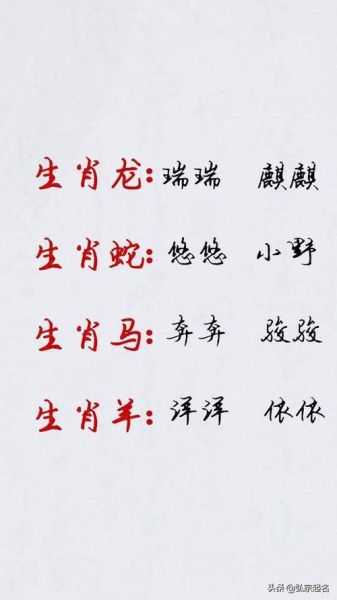 生肖龙:瑞瑞 麒麒
生肖蛇:悠悠 小野
生肖马:奔奔 骏骏
生肖羊:洋洋 依依
头条@弘宗起名